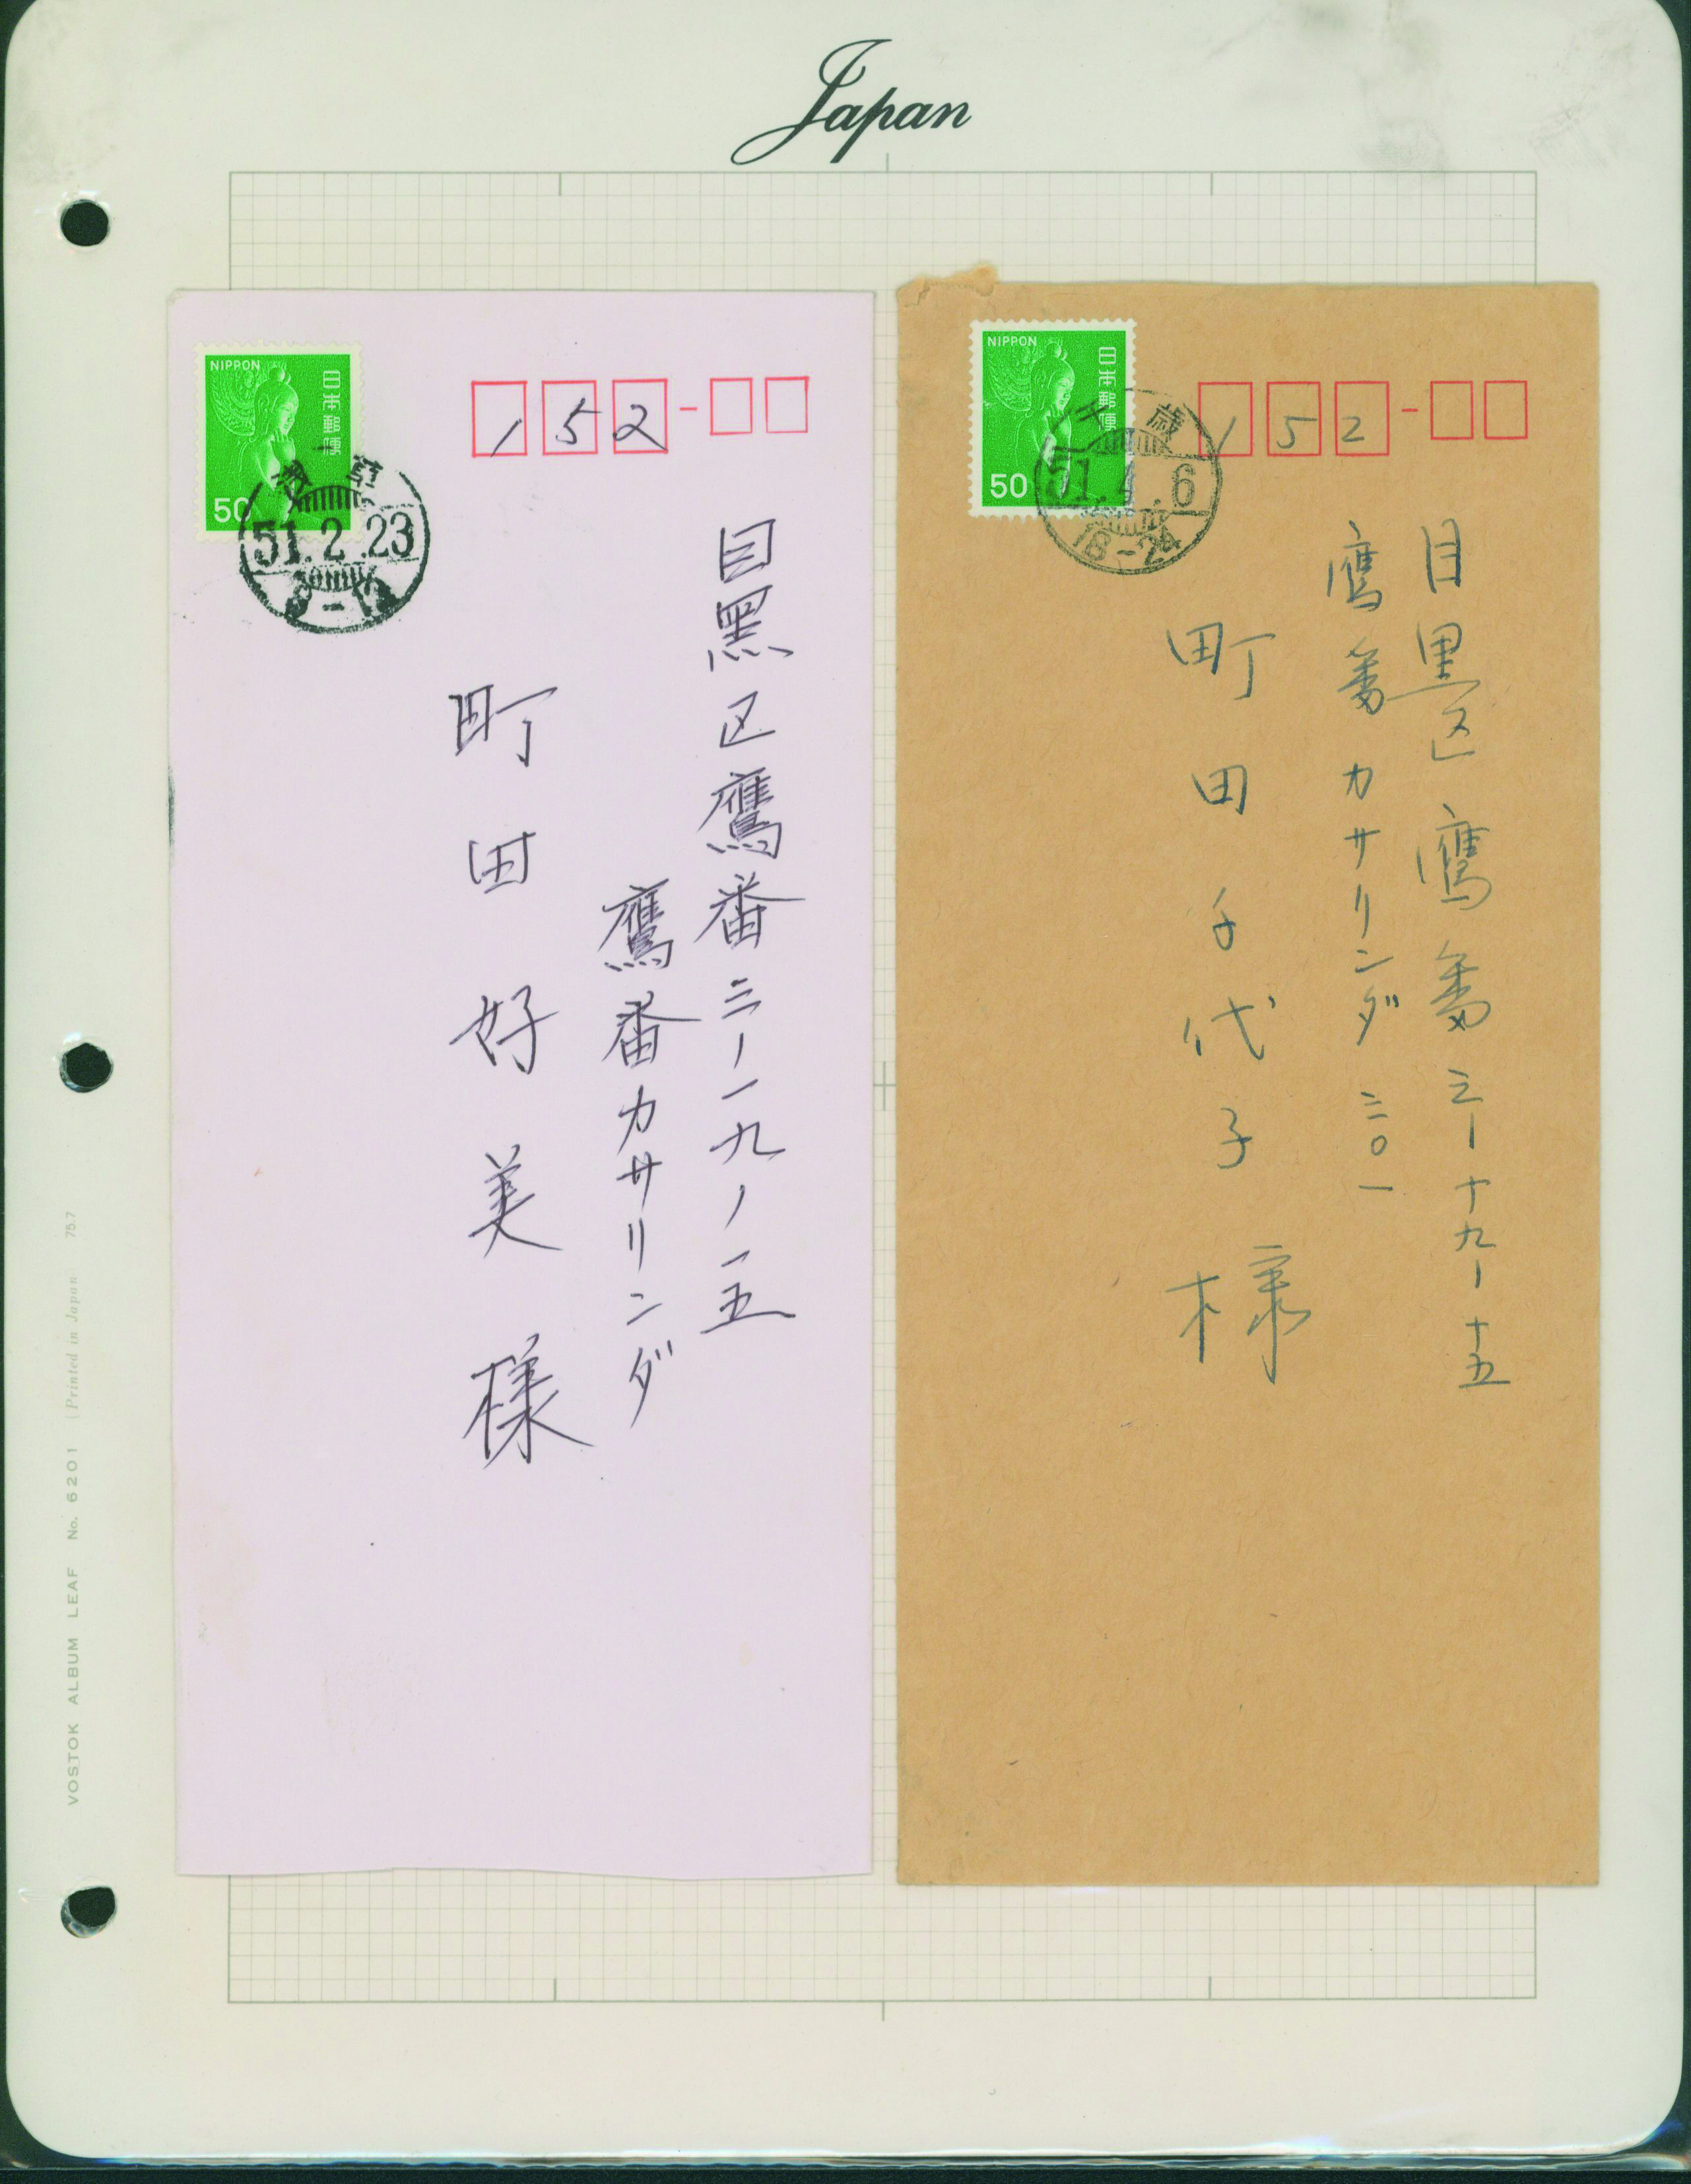 Japan
NIPPON
日本郵便
50
51.2.23
152
目黒区鷹番三ノ一九ノ一五
鷹番カサリンダ
町田好美様
NIPPON
日本郵便
50
千歳
51.4.6
18-24
152
目黒区鷹番三ー十九ー十五
鷹番カサリンダ三〇一
町田千代子様
VOSTOK ALBUM LEAF No. 6201 (Printed in Japan 75.7